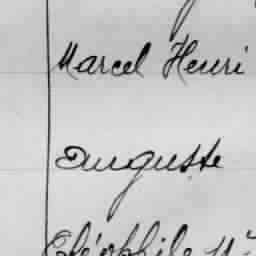 Marcel Henri
Auguste
Cléophile